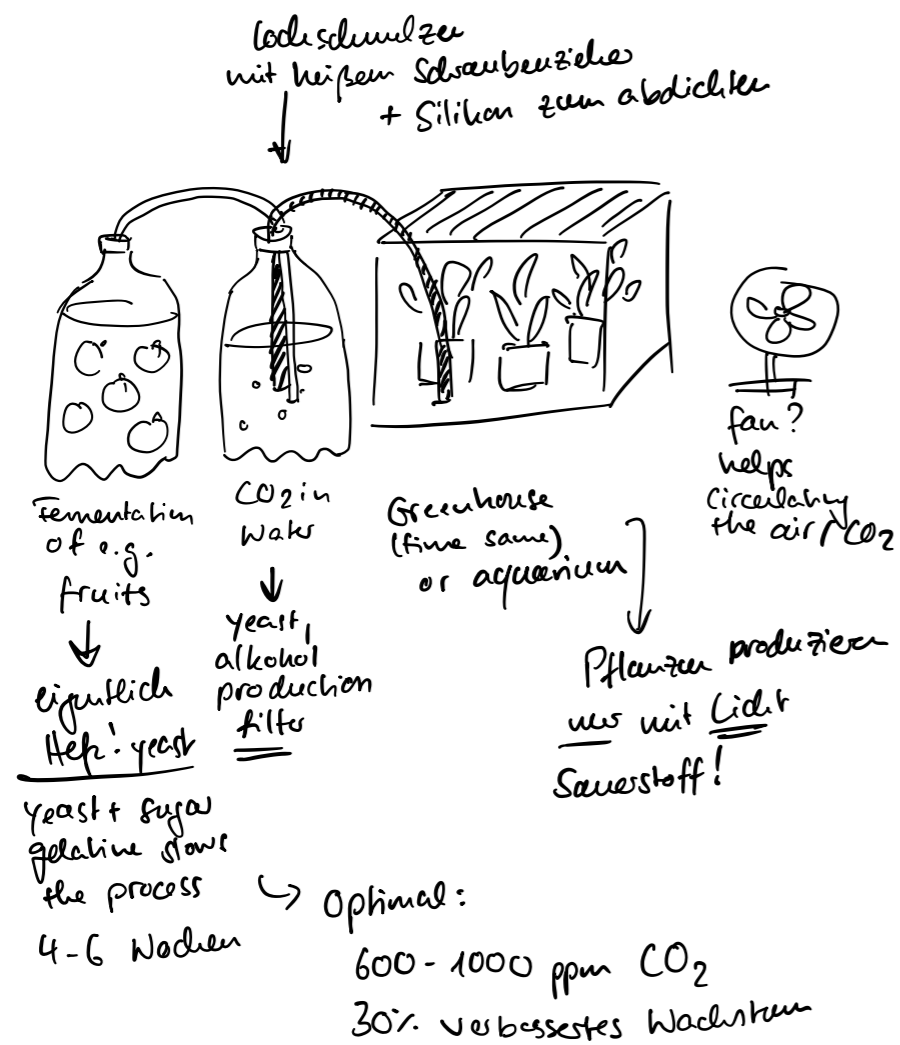 Loch schmelzen
mit heißem Schraubenzieher
+ Silikon zum abdichten
fan?
helps
circulating
the air / CO2
Fermentation
of e.g.
fruits
eigentlich
Hefe! yeast
yeast + sugar
gelatine slows
the process
4-6 Wochen
CO2 in
Water
yeast,
alkohol
production
filter
Greenhouse
(time same)
or aquarium
Pflanzen produzieren
nur mit Licht
Sauerstoff!
Optimal:
600 - 1000 ppm CO2
30% verbessertes Wachstum